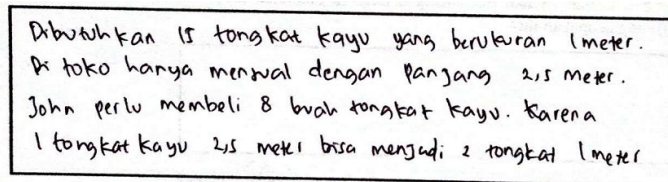 Dibutuhkan 15 tongkat kayu yang berukuran 1 meter.
Di toko hanya menjual dengan panjang 2,5 meter.
John perlu membeli 8 buah tongkat kayu. Karena
1 tongkat kayu 2,5 meter bisa menjadi 2 tongkat 1 meter